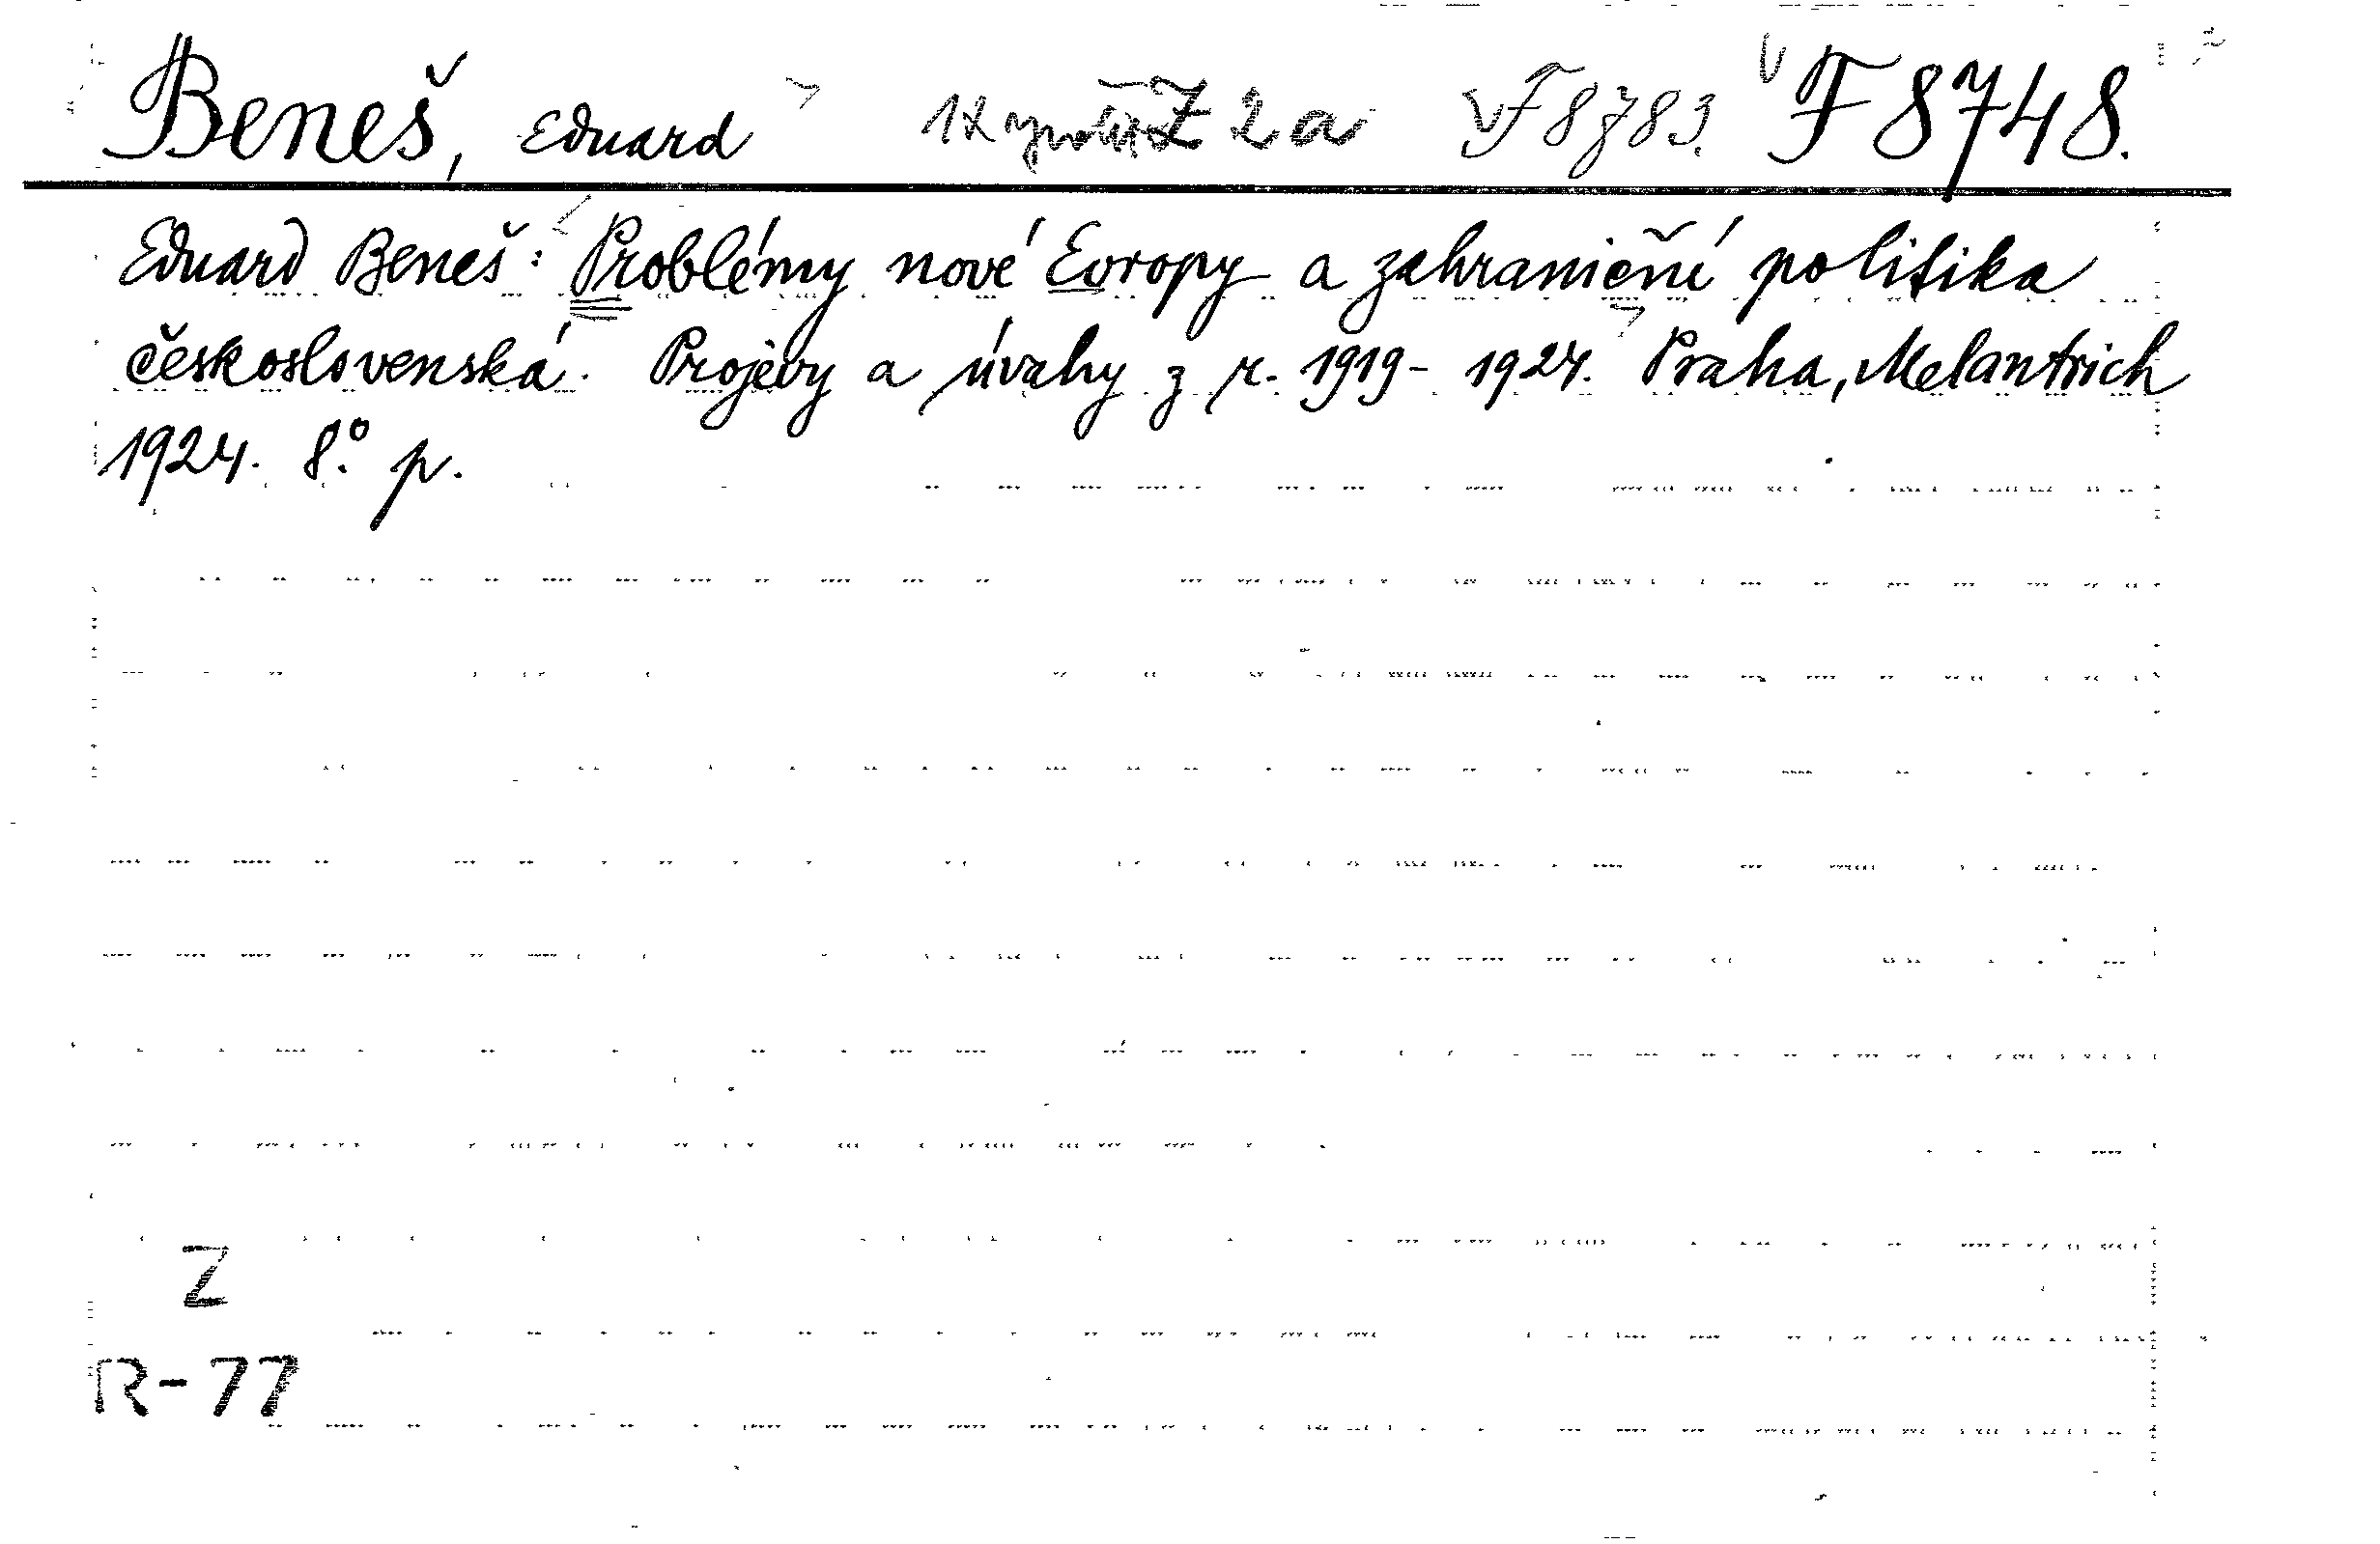 Beneš, Eduard 1x Z 2 a F 8783. F 8748.
Eduard Beneš: Problémy nové Evropy a zahraniční politika
československá. Projevy a úvahy z r. 1919-1924. Praha, Melantrich
1924. 8.° p.
Z
R-77